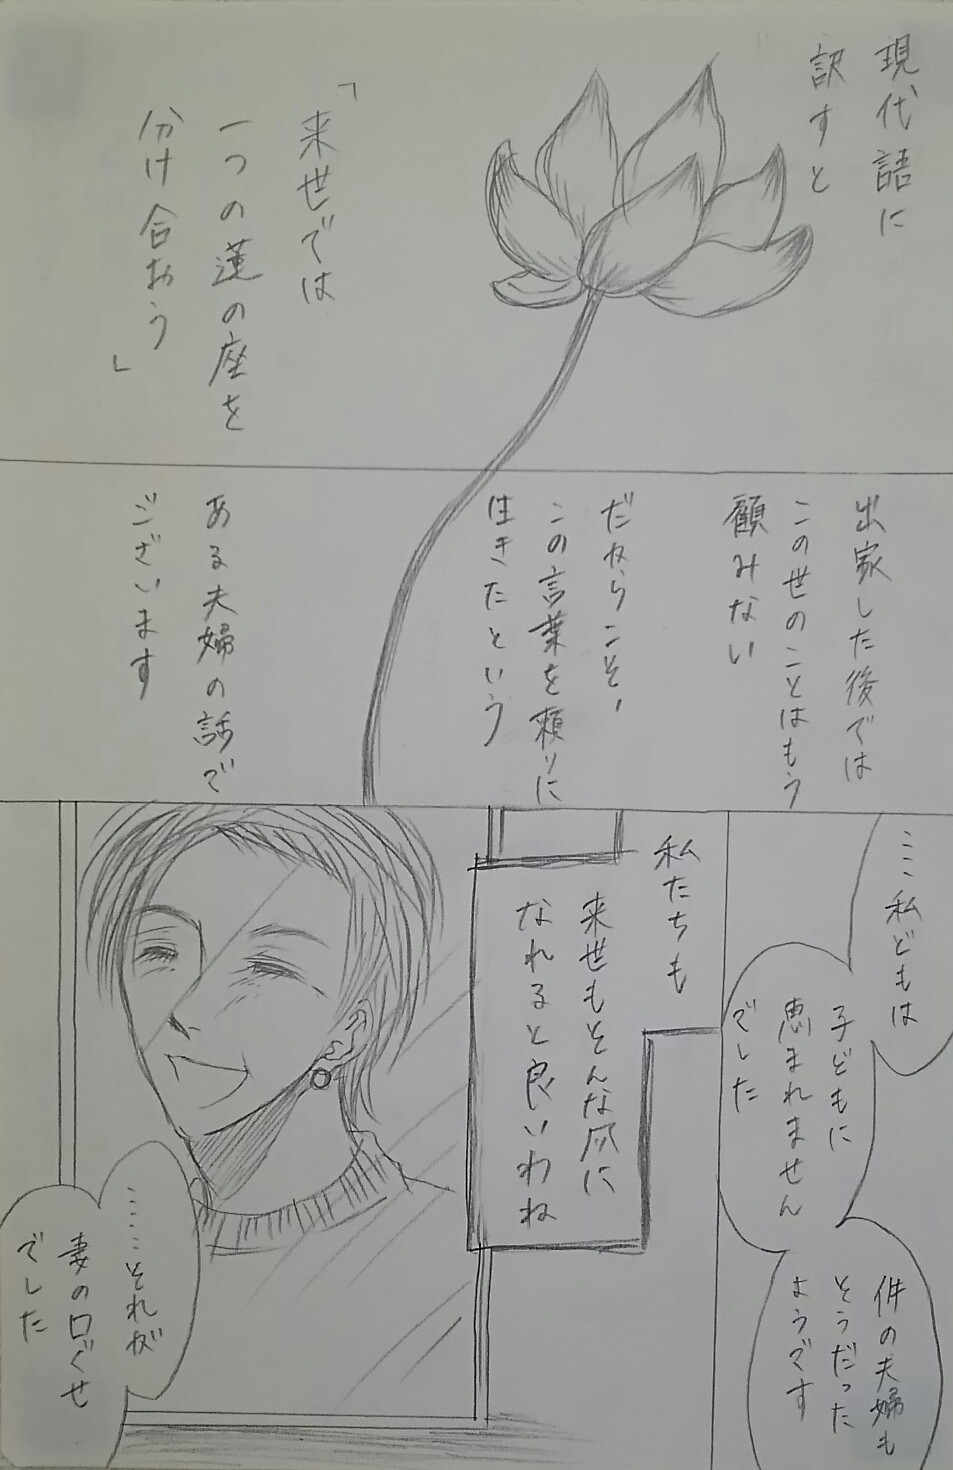 現代語に
訳すと
「来世では
一つの蓮の座を
分け合おう」
出家した後では
この世のことはもう
顧みない
だからこそ、
この言葉を頼りに
生きたという
ある夫婦の話で
ございます
……私どもは
子どもに
恵まれません
でした
件の夫婦も
そうだった
ようです
私たちも
来世もそんな風に
なれると良いわね
……それが
妻の口ぐせ
でした